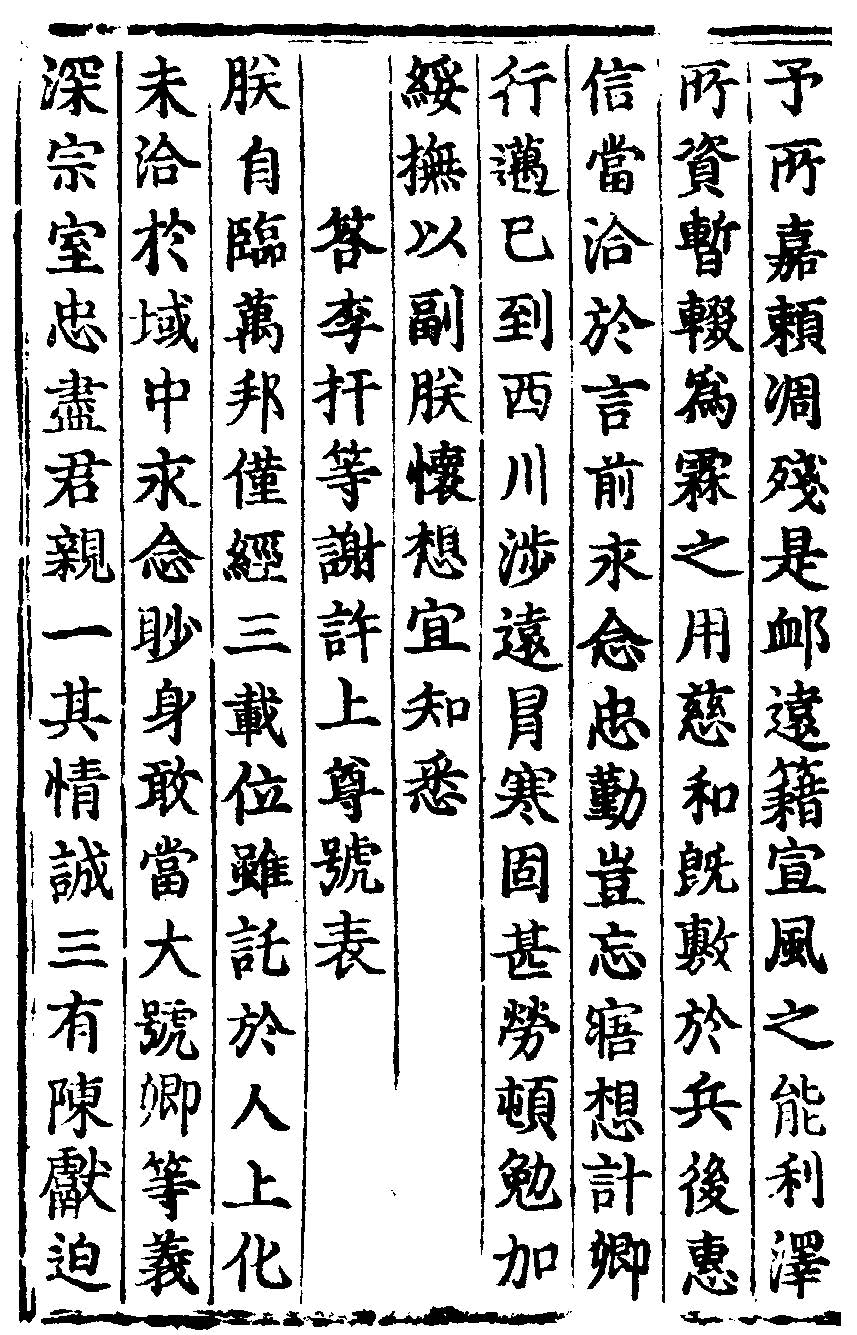 予所嘉賴凋殘是衈遠籍宣風之能利澤
所資暫輟為霖之用慈和旣敷於兵後惠
信當洽於言前永念忠勤豈忘寤想計卿
行邁已到西川涉遠冒寒固甚勞頓勉加
綏撫以副朕懷想宜知悉
答李扞等謝許上尊號表
朕自臨萬邦僅經三載位雖託於人上化
未洽於域中永念眇身敢當大號卿等義
深宗室忠盡君親一其情誠三有陳獻迫